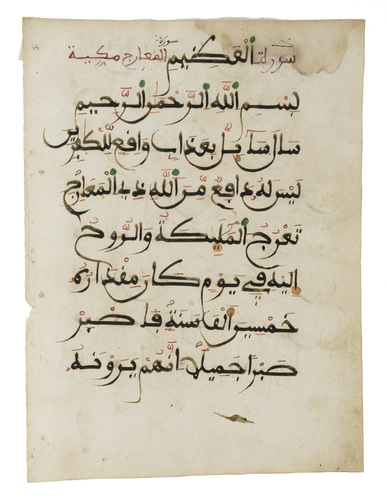 سورة العظيم سورة المعارج مكية
بسم الله الرحمن الرحيم
سال سايل بعذاب واقع للكفرين
ليس له دافع من الله ذي المعارج
تعرج المليكة والروح
اليه في يوم كان مقداره
خمسين الف سنة فاصبر
صبرا جميلا انهم يرونه